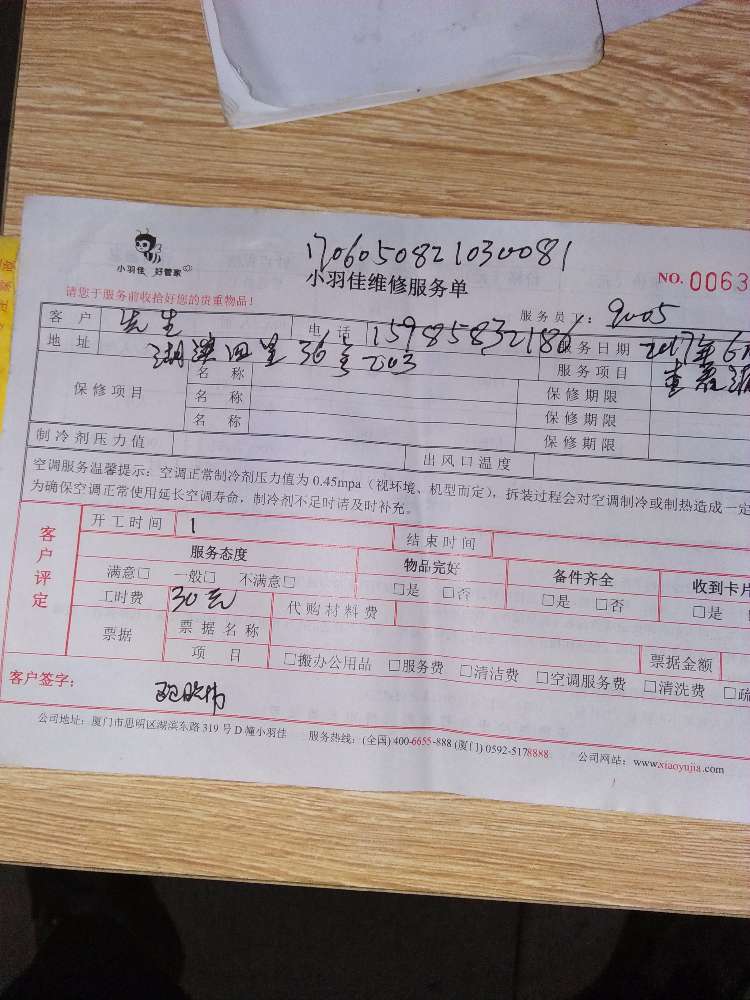 1706050821030081
小羽佳 好管家
小羽佳维修服务单
NO. 0063
请您于服务前收拾好您的贵重物品!
服务员工: 9005
客户 先生 电话 15985832186 服务日期 2017年6
地址 湖滨四里36号203 服务项目
保修项目 名称 保修期限
名称 保修期限
名称 保修期限
制冷剂压力值 出风口温度
空调服务温馨提示: 空调正常制冷剂压力值为 0.45mpa (视环境、机型而定), 拆装过程会对空调制冷或制热造成一定
为确保空调正常使用延长空调寿命, 制冷剂不足时请及时补充。
客户评定 开工时间 1 结束时间
服务态度 物品完好 备件齐全 收到卡片
满意□ 一般□ 不满意□ □是 □否 □是 □否 □是
工时费 30元 代购材料费
票据 票据名称 票据金额
项目 □搬办公用品 □服务费 □清洁费 □空调服务费 □清洗费 □疏
客户签字:
公司地址: 厦门市思明区湖滨东路 319 号 D 幢小羽佳 服务热线: (全国) 400-6655-888 (厦门) 0592-5178888 公司网站: www.xiaoyujia.com